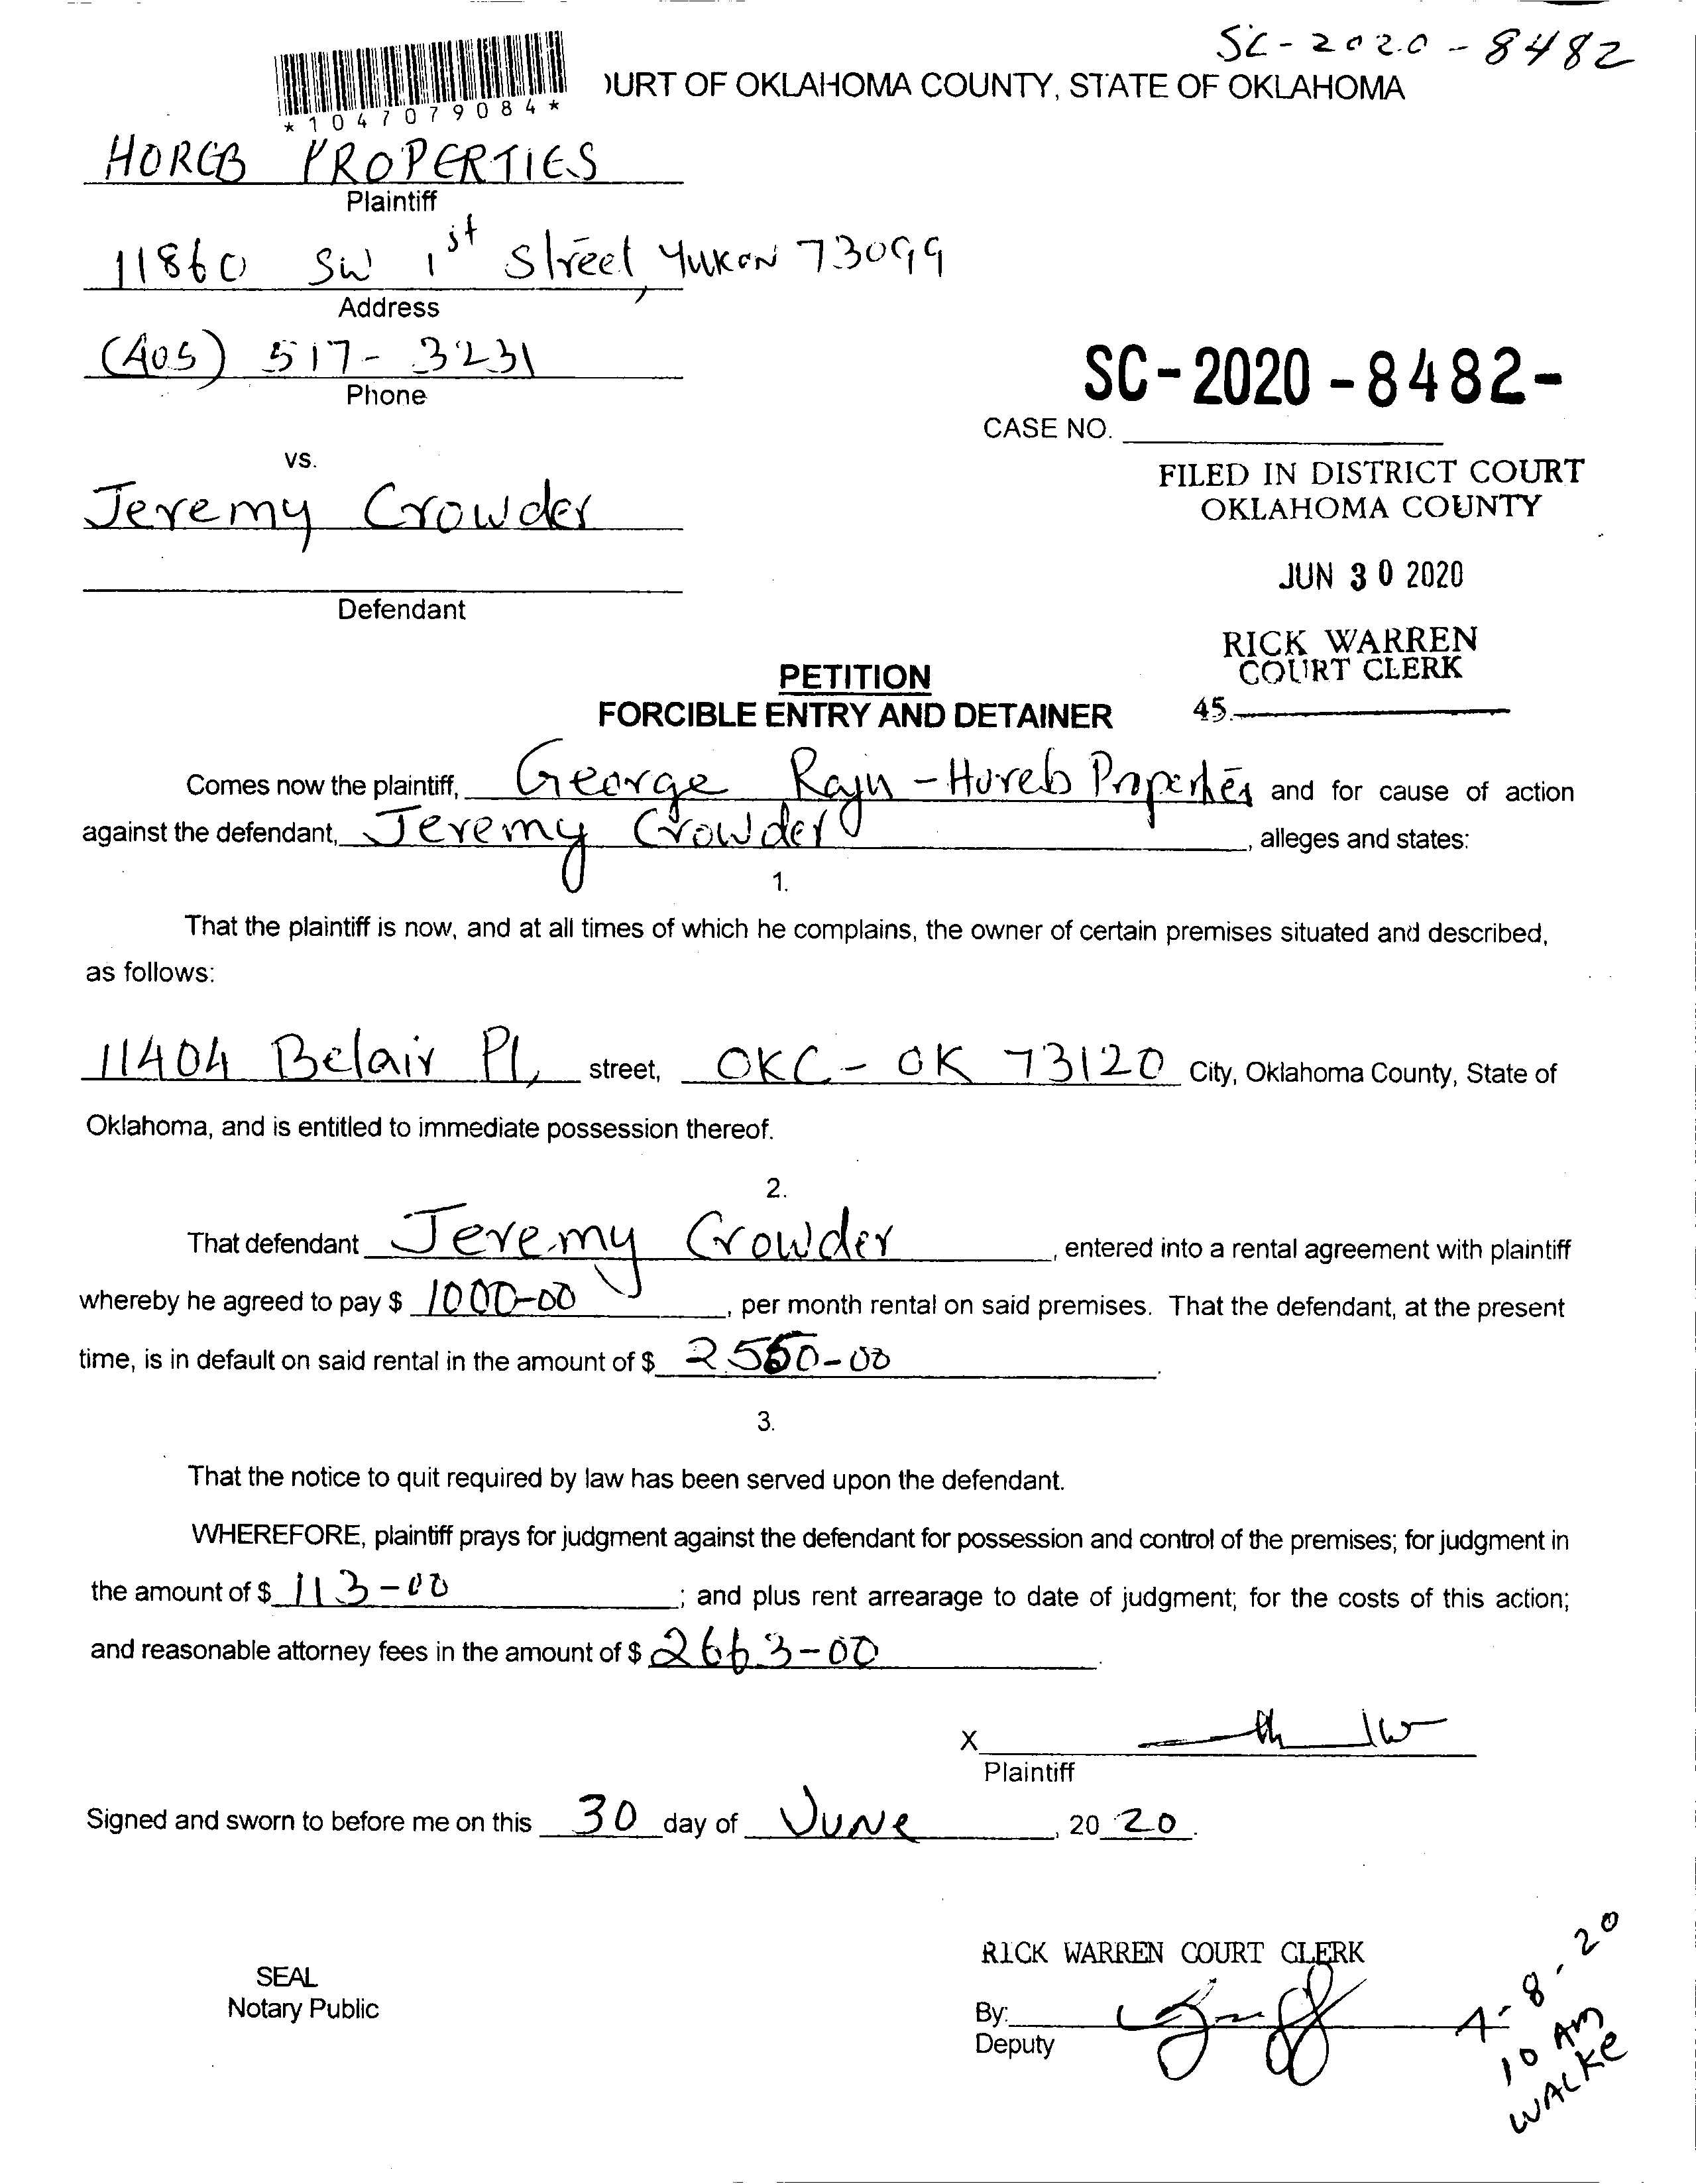 SC-2020-8482
*1047079084*
OURT OF OKLAHOMA COUNTY, STATE OF OKLAHOMA
HOREB PROPERTIES
Plaintiff
11860 SW 1st Street, YUKON 73099
Address
(405) 517-3231
Phone
SC-2020-8482-
CASE NO.
vs.
FILED IN DISTRICT COURT
OKLAHOMA COUNTY
Jeremy Crowder
JUN 30 2020
Defendant
RICK WARREN
COURT CLERK
45.
PETITION
FORCIBLE ENTRY AND DETAINER
Comes now the plaintiff, George Raju - Horeb Properties and for cause of action
against the defendant, Jeremy Crowder, alleges and states:
1.
That the plaintiff is now, and at all times of which he complains, the owner of certain premises situated and described,
as follows:
11404 Belair Pl, street, OKC - OK 73120 City, Oklahoma County, State of
Oklahoma, and is entitled to immediate possession thereof.
2.
That defendant Jeremy Crowder, entered into a rental agreement with plaintiff
whereby he agreed to pay $ 1000-00, per month rental on said premises. That the defendant, at the present
time, is in default on said rental in the amount of $ 2550-00.
3.
That the notice to quit required by law has been served upon the defendant.
WHEREFORE, plaintiff prays for judgment against the defendant for possession and control of the premises; for judgment in
the amount of $ 113-00; and plus rent arrearage to date of judgment; for the costs of this action;
and reasonable attorney fees in the amount of $ 2663-00.
X
Plaintiff
Signed and sworn to before me on this 30 day of June, 20 20.
RICK WARREN COURT CLERK
SEAL
Notary Public
By:
Deputy
7-8-20
10 AM
WALKE